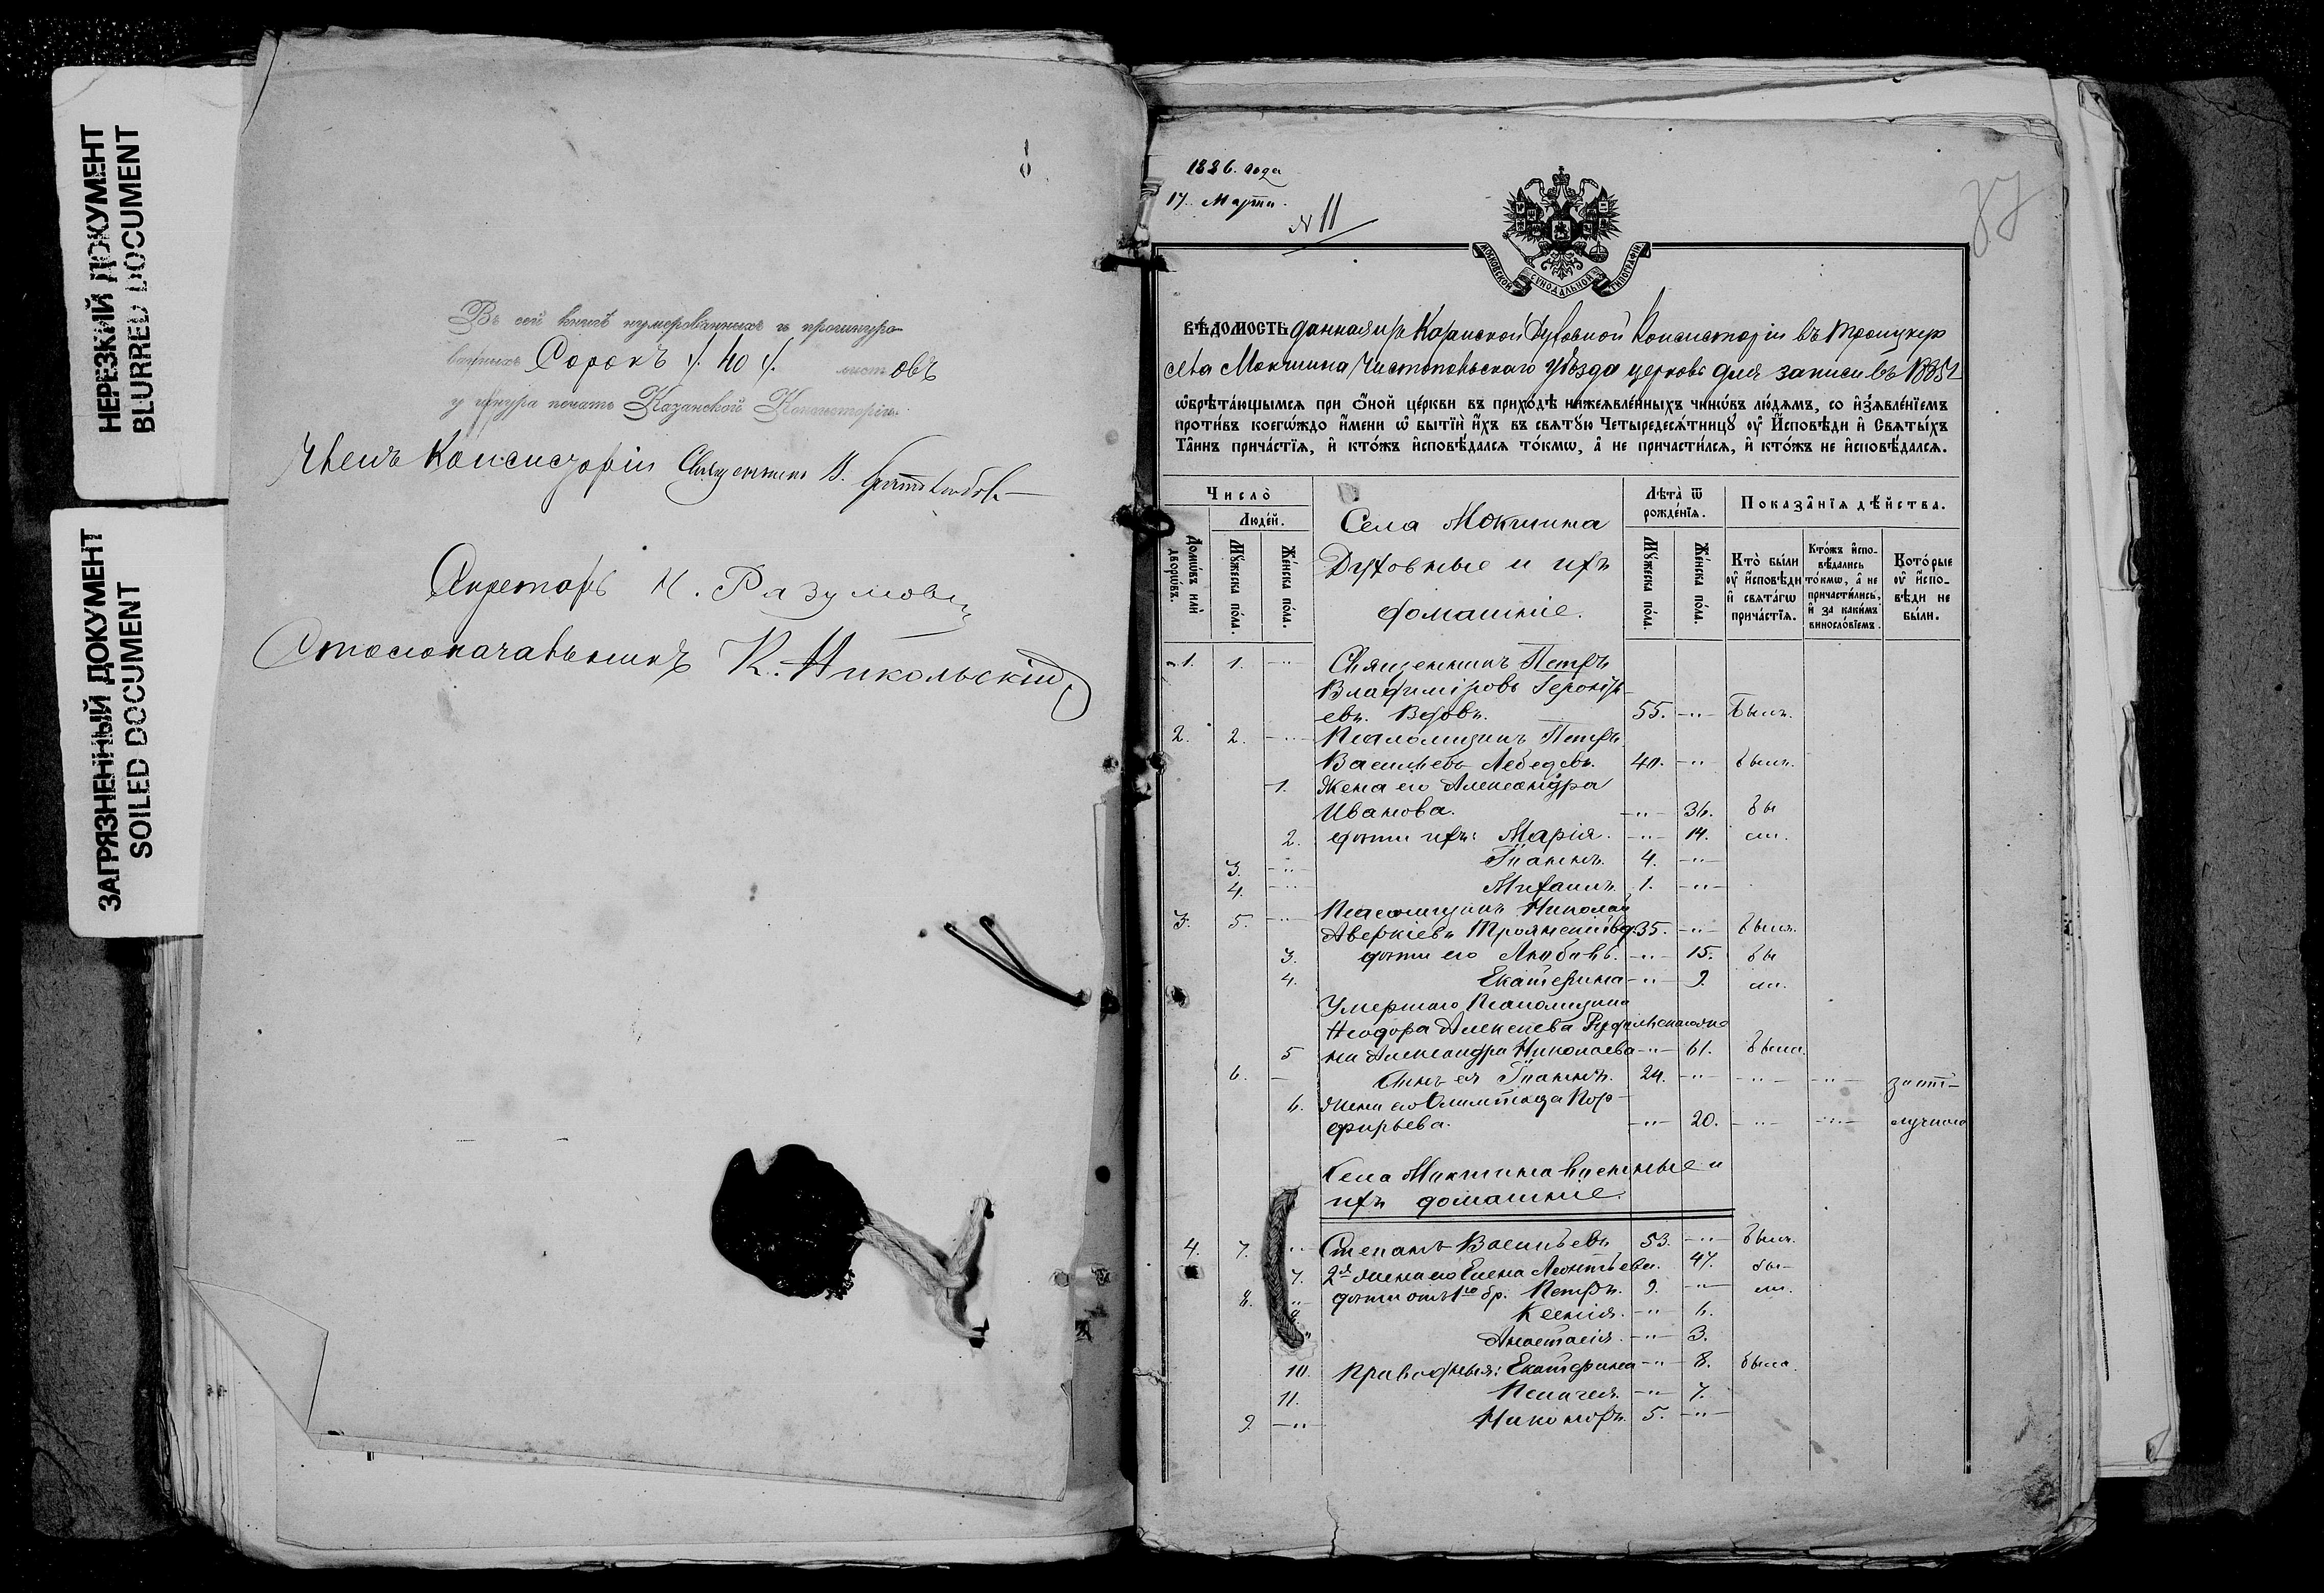 НЕРЕЗКИЙ ДОКУМЕНТ
BLURRED DOCUMENT
ЗАГРЯЗНЕННЫЙ ДОКУМЕНТ
SOILED DOCUMENT
Въ сей книгѣ нумерованныхъ и прошнуро-
ванныхъ Сорокъ /. 40 /. листовъ
у шнура печать Казанской Консисторіи.
Членъ Консисторіи Священникъ
Секретарь Н. Разумовъ
Столоначальникъ К. Никольскій
1886. года
17. Марта.
N 11
87
МОСКОВСКОЙ СѴНОДАЛЬНОЙ ТИПОГРАФІИ
ВѢДОМОСТЬ данная изъ Казанской Духовной Консисторіи въ Троицкую
села Мокшина Чистопольскаго уѣзда церковь для записи въ 1885 г.
ѡ҆брѣта́ющымсѧ при ѻ҆́ной це́ркви въ прихо́дѣ нижеѧвле́нныхъ чинѡ́въ лю́демъ, со и҆з̾ѧвле́нїемъ
про́тивъ коегѡ́ждо и҆́мени ѡ҆ бытїѝ и҆́хъ въ свѧту́ю Четыредесѧ́тницу ᲂу҆ И҆́сповѣди и҆ Свѧты́хъ
Та̑инъ прича́стїѧ, и҆ кто́жъ и҆сповѣ́далсѧ то́кмѡ, а҆ не причасти́лсѧ, и҆ кто́жъ не и҆сповѣ́далсѧ.
Число̀
Люде́й.
Домѡ́въ и҆лѝ дворѡ́въ.
Мꙋ́жеска по́ла.
Же́нска по́ла.
Села Мокшина
Духовные и ихъ
домашніе.
Лѣ́та ѿ рожде́нїѧ.
Мꙋ́жеска по́ла.
Же́нска по́ла.
Показа̑нїѧ дѣ́йства.
Кто̀ бы́ли ᲂу҆ и҆́сповѣди и҆ свѧта́гѡ прича́стїѧ.
Кто́жъ и҆сповѣ́дались то́кмѡ, а҆ не причасти́лись, и҆ за каки́мъ виносло́вїемъ.
Кото́рые ᲂу҆ и҆́сповѣди не бы́ли.
1. 1. -"- Священникъ Петръ
Владиміровъ
евъ. Вдовъ. 55. -"- Былъ.
2. 2. -"- Псаломщикъ Петръ
Васильевъ Лебедевъ. 40. -"- былъ.
1. Жена его Александра
Иванова. -"- 36. бы
2. дѣти ихъ: Марія. -"- 14. ли.
3. -"- Іоаннъ. 4. -"-
4. -"- Михаилъ. 1. -"-
3. 5. -"- Псаломщикъ Николай
Аверкіевъ Троянскій вд. 35. -"- былъ.
3. дѣти его Любовь. -"- 15. бы
4. Екатерина -"- 9. ли.
Умершаго Псаломщика
Ѳеодора Алексѣева
5 на Александра Николаева -"- 61. была.
6. — Сынъ ея Іоаннъ. 24. -"- -"- -"- за от-
6. жена его Олимпіада Пор-
фирьева. -"- 20. -"- -"- лучкою
Села Мокшина военные и
ихъ домашніе.
4. 7. " Степанъ Васильевъ 53. -"- былъ.
7. 2я жена его Елена Леонтьева. 47. бы-
8. " дѣти отъ 1го бр. Петръ. 9. -"- ли.
Ксенія. -"- 6.
Анастасія. -"- 3.
10. Приводныя: Екатерина -"- 8. была.
11. Пелагея. -"- 7.
9. -"- Никаноръ. 5. -"-